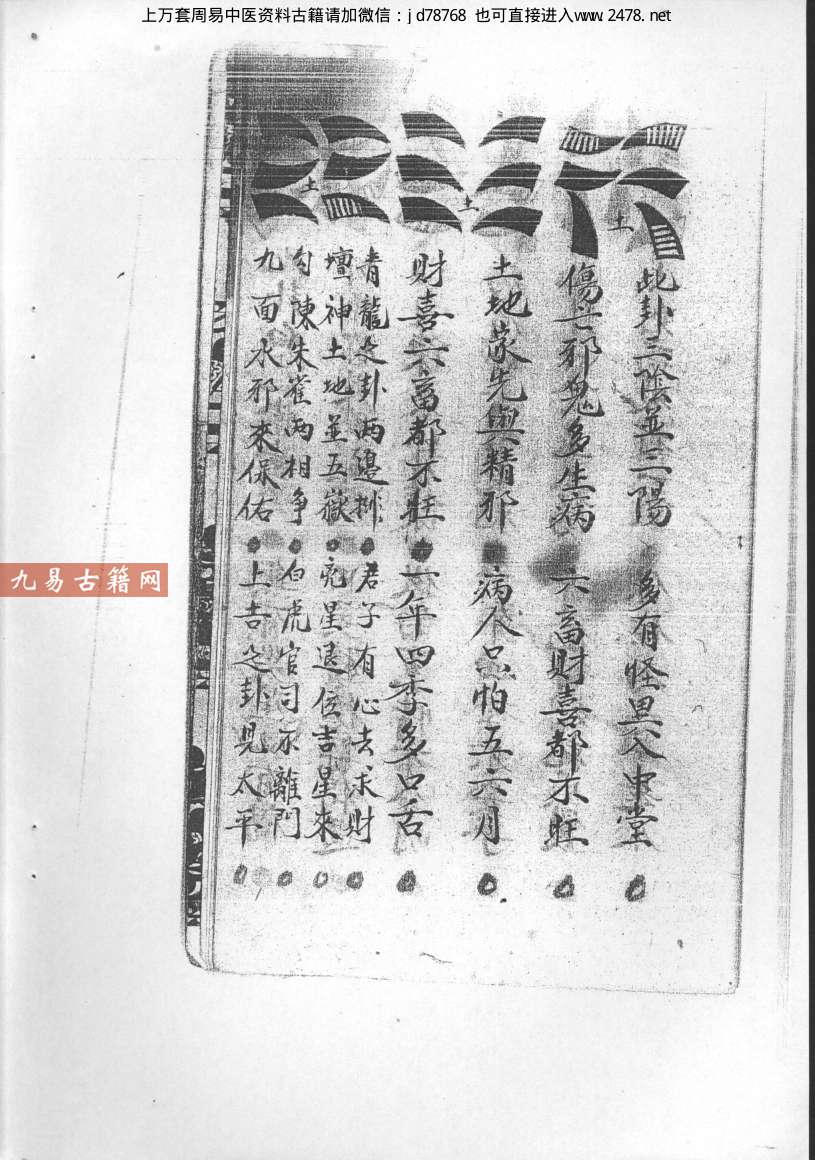 上万套周易中医资料古籍请加微信：jd78768 也可直接进入www.2478.net
土 土 土
此卦三陰並三陽 多有怪異入中堂
傷亡邪鬼多生病 六畜財喜都不旺
土地家先與精邪 病人只怕五六月
財喜六畜都不旺 一年四季多口舌
青龍之卦兩邊排 君子有心去求財
壇神土地並五嶽 亮星退位吉星來
勾陳朱雀兩相爭 白虎官司不離門
九面水邪來保佑 上吉之卦見太平
九易古籍网